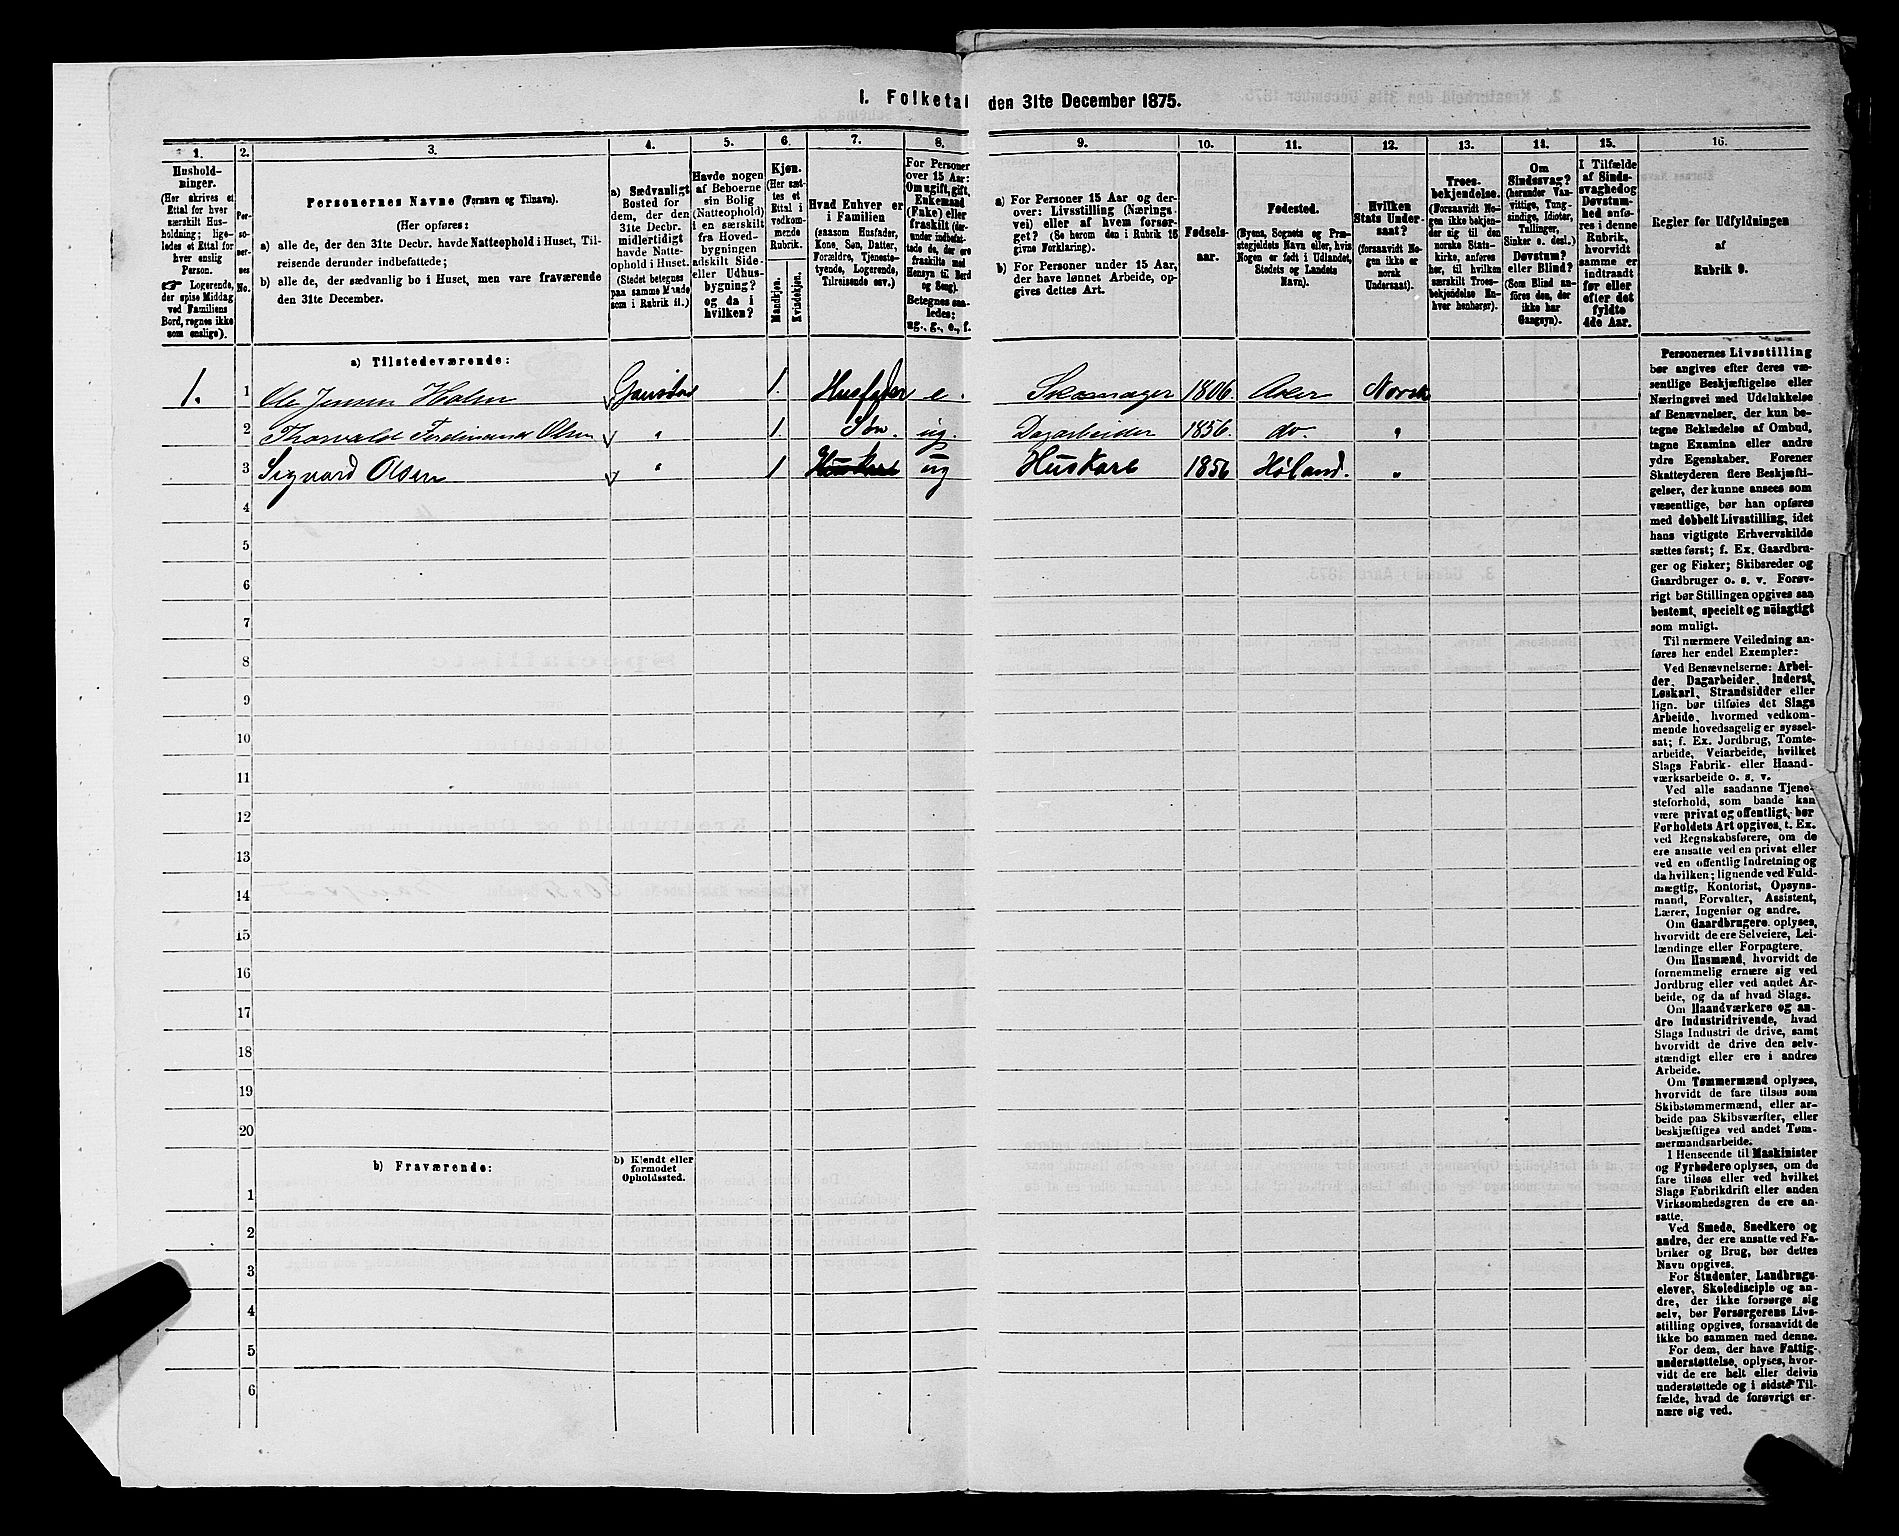 1. Folketal den 31te December 1875.
1. 2. 3. 4. 5. 6. 7. 8. 9. 10. 11. 12. 13. 14. 15. 16.
Hushold-
ninger.
(Her skrives et
Ettal for hver
særskilt Hus-
holdning; lige-
ledes et Ettal for
hver enslig
Person.
☛ Logerende,
der spise Middag
ved Familiens
Bord, regnes ikke
som enslige).
Per-
so-
ner-
nes
No.
Personernes Navne (Fornavn og Tilnavn).
(Her opføres:
a) alle de, der den 31te Decbr. havde Natteophold i Huset, Til-
reisende derunder indbefattede;
b) alle de, der sædvanlig bo i Huset, men vare fraværende
den 31te December.
a) Sædvanligt
Bosted for
dem, der den
31te Decbr.
midlertidigt
havde Natte-
ophold i Huset.
(Stedet betegnes
paa samme Maade
som i Rubrik 11.)
Havde nogen
af Beboerne
sin Bolig
(Natteophold)
i en særskilt
fra Hoved-
bygningen
adskilt Side-
eller Udhus-
bygning?
og da i
hvilken?
Kjøn.
(Her sæt-
tes et
Ettal i
vedkom-
mende
Rubrik.
Mandkjøn.
Kvindekjøn.
Hvad Enhver er
i Familien
(saasom Husfader,
Kone, Søn, Datter,
Forældre, Tjeneste-
tyende, Logerende,
Tilreisende osv.)
For Personer
over 15 Aar:
Om ugift, gift,
Enkemand
(Enke) eller
fraskilt (der-
under indbefat-
tede de, der ere
fraskilte med
Hensyn til Bord
og Seng).
Betegnes saa-
ledes:
ug., g., e., f.
a) For Personer 15 Aar og der-
over: Livsstilling (Nærings-
vei) eller af hvem forsør-
get? (Se herom den i Rubrik 16
givne Forklaring).
b) For Personer under 15 Aar,
der have lønnet Arbeide, op-
gives dettes Art.
Fødsels-
aar.
Fødested.
(Byens, Sognets og Præ-
stegjeldets Navn eller, hvis
Nogen er født i Udlandet,
Stedets og Landets
Navn).
Hvilken
Stats Under-
saat?
(forsaavidt No-
gen ikke er
norsk
Undersaat).
Troes-
bekjendelse.
(Forsaavidt No-
gen ikke bekjen-
der sig til den
norske Stats-
kirke, anføres
her, til hvilken
særskilt Troes-
bekjendelse En-
hver henhører).
Om
Sindssvag?
(herunder Van-
vittige, Tung-
sindige, Idioter,
Tullinger,
Sinker o. desl.)
Døvstum?
eller Blind?
(Som Blind an-
føres den, der
ikke har
Gangsyn).
I Tilfælde
af Sinds-
svaghed og
Døvstum-
hed anfø-
res i denne
Rubrik,
hvorvidt
samme er
indtraadt
før eller
efter det
fyldte
4de Aar.
Regler for Udfyldningen
af
Rubrik 9.
a) Tilstedeværende:
1. 1 Ole Jensen Holm Gaustad 1. Husfader e. Skomager 1806. Asker Norsk
2 Thorvald Ferdinand Olsen " 1. Søn. ug. Dagarbeider 1856. do. "
3 Sigvard Olsen " 1 Huskarl ug Huskarl 1856 Høland. "
4
5
6
7
8
9
10
11
12
13
14
15
16
17
18
19
20
b) Fraværende:
b) Kjendt eller
formodet
Opholdssted.
1
2
3
4
5
6
Personernes Livsstilling
bør angives efter deres væ-
sentlige Beskjæftigelse eller
Næringsvei med Udelukkelse
af Benævnelser, der kun be-
tegne Beklædelse af Ombud,
tagne Examina eller andre
ydre Egenskaber. Forener
Skatteyderen flere Beskjæfti-
gelser, der kunne ansees som
væsentlige, bør han opføres
med dobbelt Livsstilling, idet
hans vigtigste Erhvervskilde
sættes først; f. Ex. Gaardbru-
ger og Fisker; Skibsreder og
Gaardbruger o. s. v. Forøv-
rigt bør Stillingen opgives saa
bestemt, specielt og nöiagtigt
som muligt.
Til nærmere Veiledning an-
føres her endel Exempler:
Ved Benævnelserne: Arbei-
der, Dagarbeider, Inderst,
Løskarl, Strandsidder eller
lign. bør tilføies det Slags
Arbeide, hvormed vedkom-
mende hovedsagelig er syssel-
sat; f. Ex. Jordbrug, Tomte-
arbeide, Veiarbeide, hvilket
Slags Fabrik- eller Haand-
værksarbeide o. s. v.
Ved alle saadanne Tjene-
steforhold, som baade kan
være privat og offentligt, bør
Forholdets Art opgives, t. Ex.
ved Regnskabsførere, om de
ere ansatte ved en privat eller
ved en offentlig Indretning og
da hvilken; lignende ved Fuld-
mægtig, Kontorist, Opsyns-
mand, Forvalter, Assistent,
Lærer, Ingeniør og andre.
Om Gaardbrugere oplyses,
hvorvidt de ere Selveiere, Lei-
lændinge eller Forpagtere.
Om Husmænd, hvorvidt de
fornemmelig ernære sig ved
Jordbrug eller ved andet Ar-
beide, og da af hvad Slags.
Om Haandværkere og an-
dre Industridrivende, hvad
Slags Industri de drive, samt
hvorvidt de drive den selv-
stændigt eller ere i andres
Arbeide.
Om Tømmermænd oplyses,
hvorvidt de fare tilsøs som
Skibstømmermænd, eller ar-
beide paa Skibsværfter, eller
beskjæftiges ved andet Tøm-
mermandsarbeide.
I Henseende til Maskinister
og Fyrbødere oplyses, om de
fare tilsøs eller ved hvilket
Slags Fabrikdrift eller anden
Virksomhedsgren de ere an-
satte.
Ved Smede, Snedkere og
andre, der ere ansatte ved Fa-
briker og Brug, bør dettes
Navn opgives.
For Studenter, Landbrugs-
elever, Skoledisciple og an-
dre, der ikke forsørge sig
selv, bør Forsørgerens Livs-
stilling opgives, forsaavidt de
ikke bo sammen med denne.
For dem, der have Fattig-
understøttelse, oplyses, hvor-
vidt de ere helt eller delvis
understøttede og i sidste Til-
fælde, hvad de forøvrigt er-
nære sig ved.